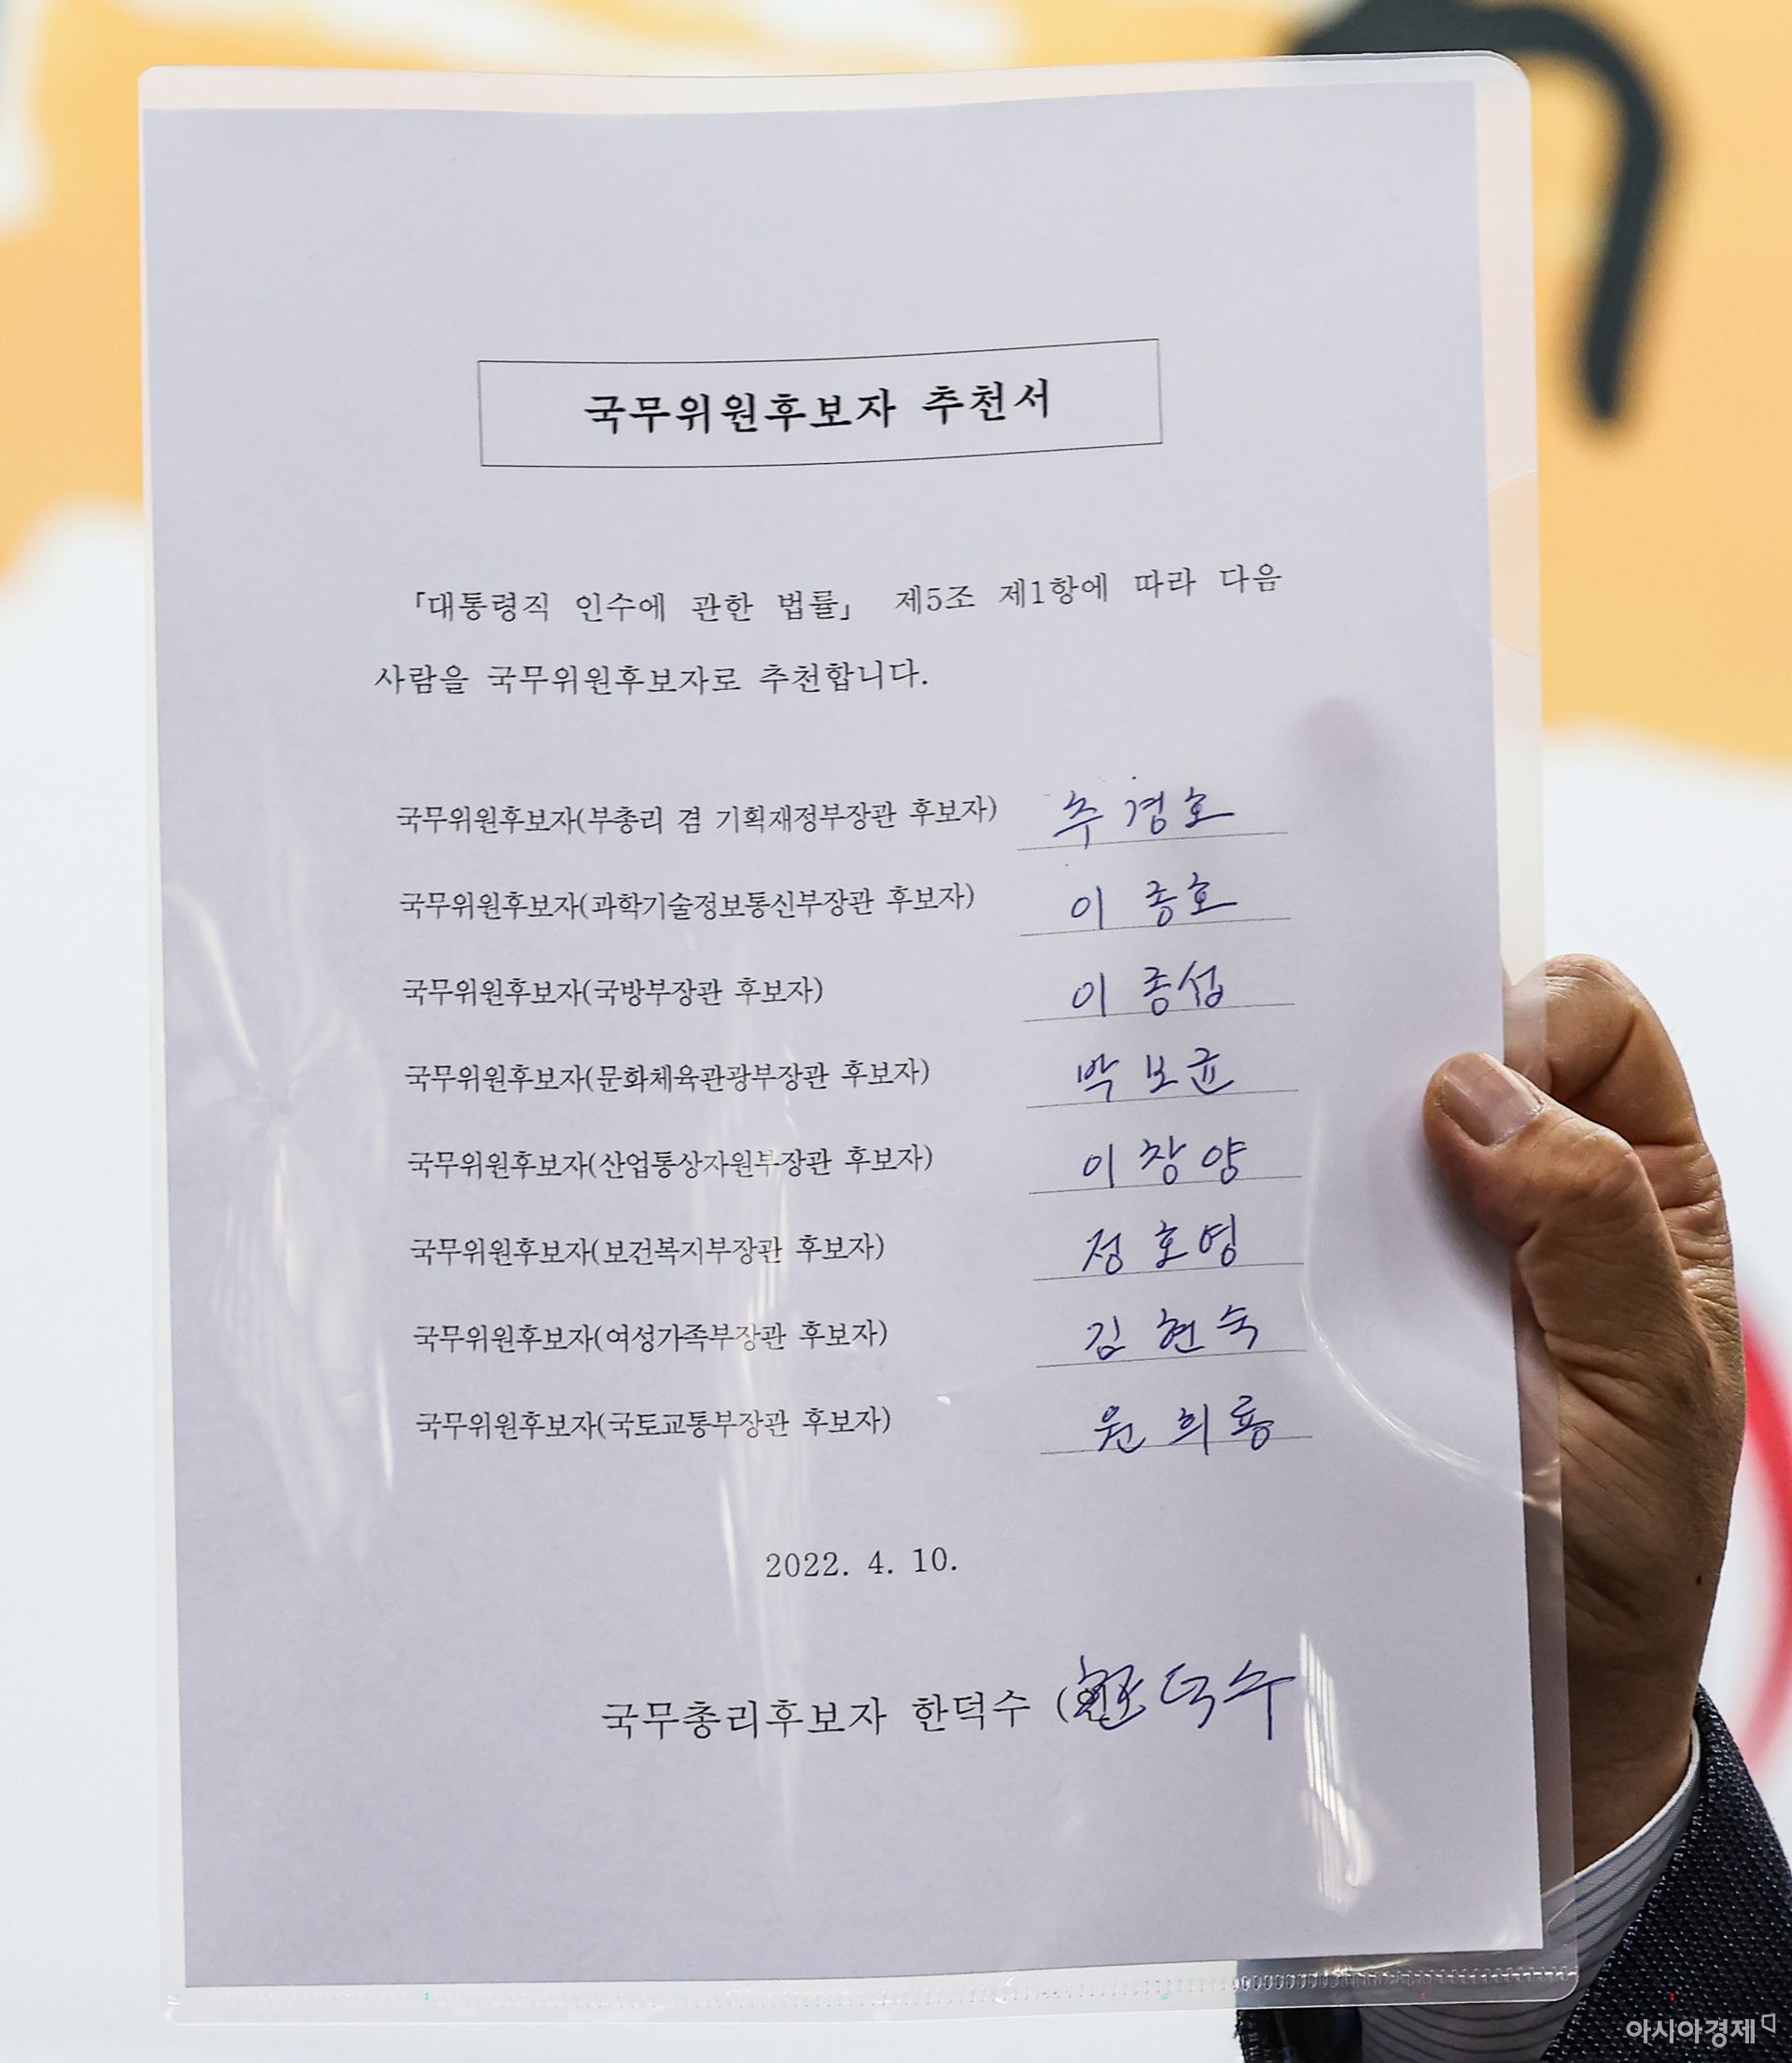 국무위원후보자 추천서
「대통령직 인수에 관한 법률」 제5조 제1항에 따라 다음
사람을 국무위원후보자로 추천합니다.
국무위원후보자(부총리 겸 기획재정부장관 후보자) 추경호
국무위원후보자(과학기술정보통신부장관 후보자) 이종호
국무위원후보자(국방부장관 후보자) 이종섭
국무위원후보자(문화체육관광부장관 후보자) 박보균
국무위원후보자(산업통상자원부장관 후보자) 이창양
국무위원후보자(보건복지부장관 후보자) 정호영
국무위원후보자(여성가족부장관 후보자) 김현숙
국무위원후보자(국토교통부장관 후보자) 원희룡
2022. 4. 10.
국무총리후보자 한덕수 ( 한덕수
아시아경제